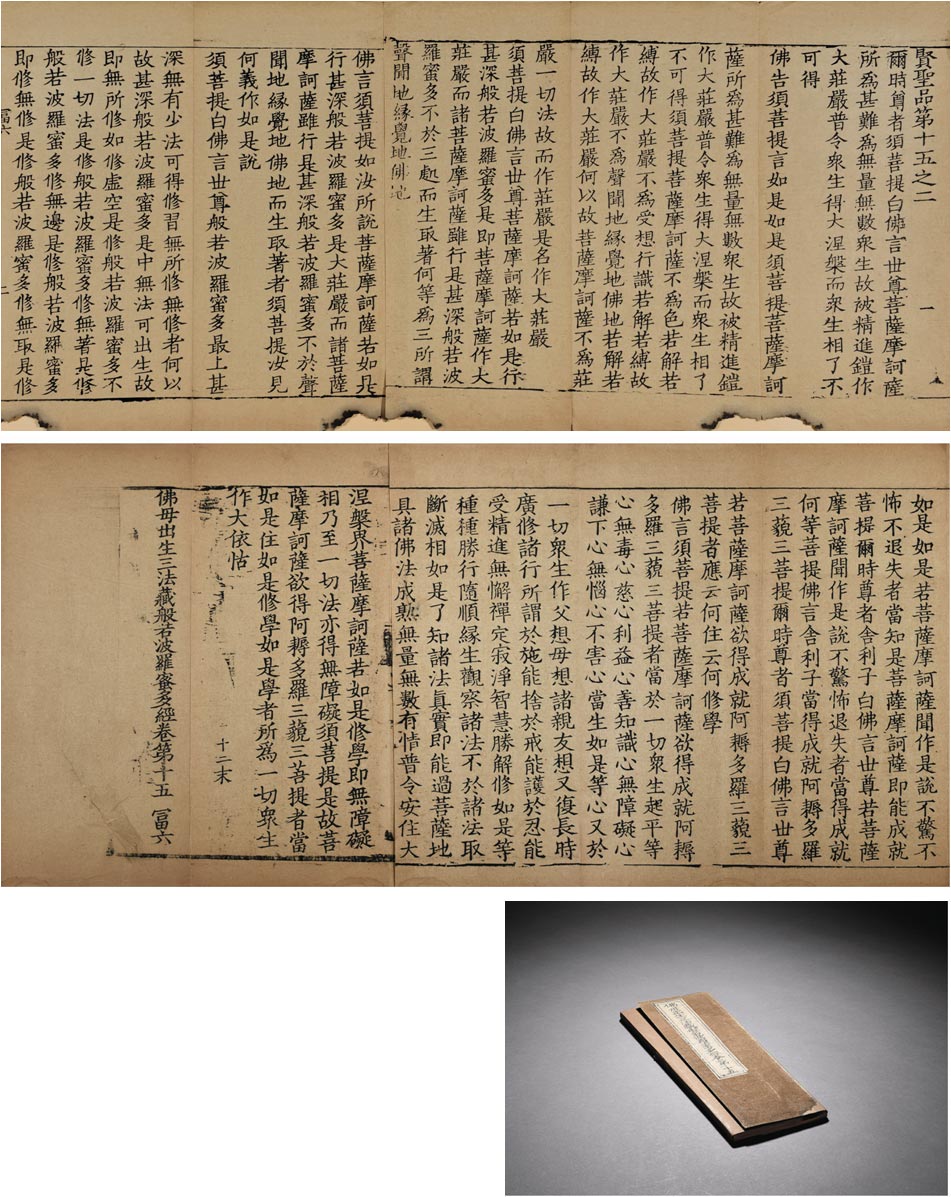 賢聖品第十五之二
爾時尊者須菩提白佛言世尊菩薩摩訶薩
所為甚難為無量無數衆生故被精進鎧作
大莊嚴普令衆生得大涅槃而衆生相了不
可得
佛告須菩提言如是如是須菩提菩薩摩訶
薩所為甚難為無量無數衆生故被精進鎧
作大莊嚴普令衆生得大涅槃而衆生相了
不可得須菩提菩薩摩訶薩不為色若解若
縛故作大莊嚴不為受想行識若解若縛故
作大莊嚴不為聲聞地緣覺地佛地若解若
縛故作大莊嚴何以故菩薩摩訶薩不為莊
嚴一切法故而作莊嚴是名作大莊嚴
須菩提白佛言世尊菩薩摩訶薩若如是行
甚深般若波羅蜜多是即菩薩摩訶薩作大
莊嚴而諸菩薩摩訶薩雖行是甚深般若波
羅蜜多不於三處而生取著何等為三所謂
聲聞地緣覺地佛地
佛言須菩提如汝所說菩薩摩訶薩若如是
行甚深般若波羅蜜多是大莊嚴而諸菩薩
摩訶薩雖行是甚深般若波羅蜜多不於聲
聞地緣覺地佛地而生取著者須菩提汝見
何義作如是說
須菩提白佛言世尊般若波羅蜜多最上甚
深無有少法可得修習無所修無修者何以
故甚深般若波羅蜜多是中無法可出生故
即無所修如修虛空是修般若波羅蜜多不
修一切法是修般若波羅蜜多修無著是修
般若波羅蜜多修無邊是修般若波羅蜜多
即修無修是修般若波羅蜜多修無取是修
一
冨六
二
如是如是若菩薩摩訶薩聞作是說不驚不
怖不退失者當知是菩薩摩訶薩即能成就
菩提爾時尊者舍利子白佛言世尊若菩薩
摩訶薩聞作是說不驚怖退失者當得成就
何等菩提佛言舍利子當得成就阿耨多羅
三藐三菩提爾時尊者須菩提白佛言世尊
若菩薩摩訶薩欲得成就阿耨多羅三藐三
菩提者應云何住云何修學
佛言須菩提若菩薩摩訶薩欲得成就阿耨
多羅三藐三菩提者當於一切衆生起平等
心無毒心慈心利益心善知識心無障礙心
謙下心無惱心不害心當生如是等心又於
一切衆生作父想母想諸親友想又復長時
廣修諸行所謂於施能捨於戒能護於忍能
受精進無懈禪定寂淨智慧勝解修如是等
種種勝行隨順緣生觀察諸法不於諸法取
斷滅相如是了知諸法真實即能過菩薩地
具諸佛法成熟無量無數有情普令安住大
涅槃界菩薩摩訶薩若如是修學即無障礙
相乃至一切法亦得無障礙須菩提是故菩
薩摩訶薩欲得阿耨多羅三藐三菩提者當
如是住如是修學如是學者所為一切衆生
作大依怙
十二末
佛母出生三法藏般若波羅蜜多經卷第十五 冨六